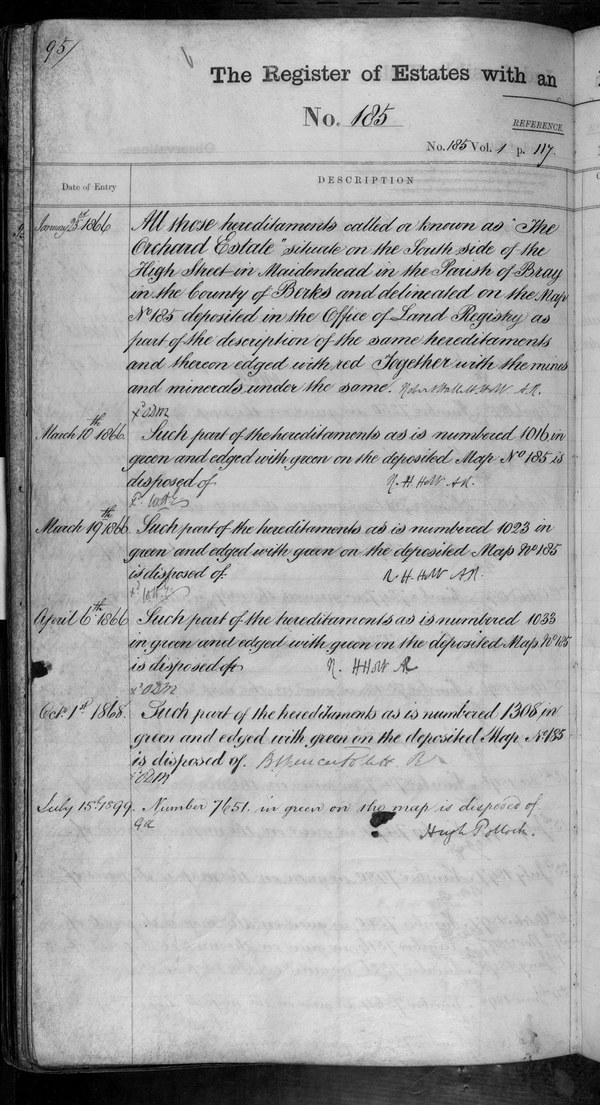 957
The Register of Estates with an
No. 185
REFERENCE
No. 185 Vol. 1 p. 117.
Date of Entry
DESCRIPTION
January 25th 1866 All those hereditaments called or known as "The
Orchard Estate" situate on the South side of the
High Street in Maidenhead in the Parish of Bray
in the County of Berks and delineated on the Map
No 185 deposited in the Office of Land Registry as
part of the description of the same hereditaments
and thereon edged with red Together with the mines
and minerals under the same. Robert Hallett Holt A.R.
March 10th 1866. Such part of the hereditaments as is numbered 1016 in
green and edged with green on the deposited Map No 185 is
disposed of R. H. Holt A.R.
March 19th 1866 Such part of the hereditaments as is numbered 1023 in
green and edged with green on the deposited Map No 185
is disposed of. R. H. Holt A.R.
April 6th 1866 Such part of the hereditaments as is numbered 1033
in green and edged with green on the deposited Map No 185
is disposed of R. H. Holt AR
Octr 1st 1868. Such part of the hereditaments as is numbered 1308 in
green and edged with green on the deposited Map No 185
is disposed of.
July 15th 1899. Number 7651. in green on the map is disposed of.
Hugh Pollock.